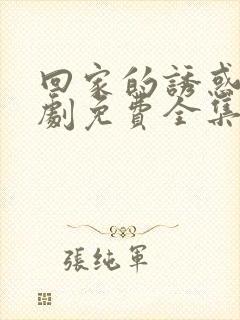 回家的誘惑
劇免費全集
張純軍